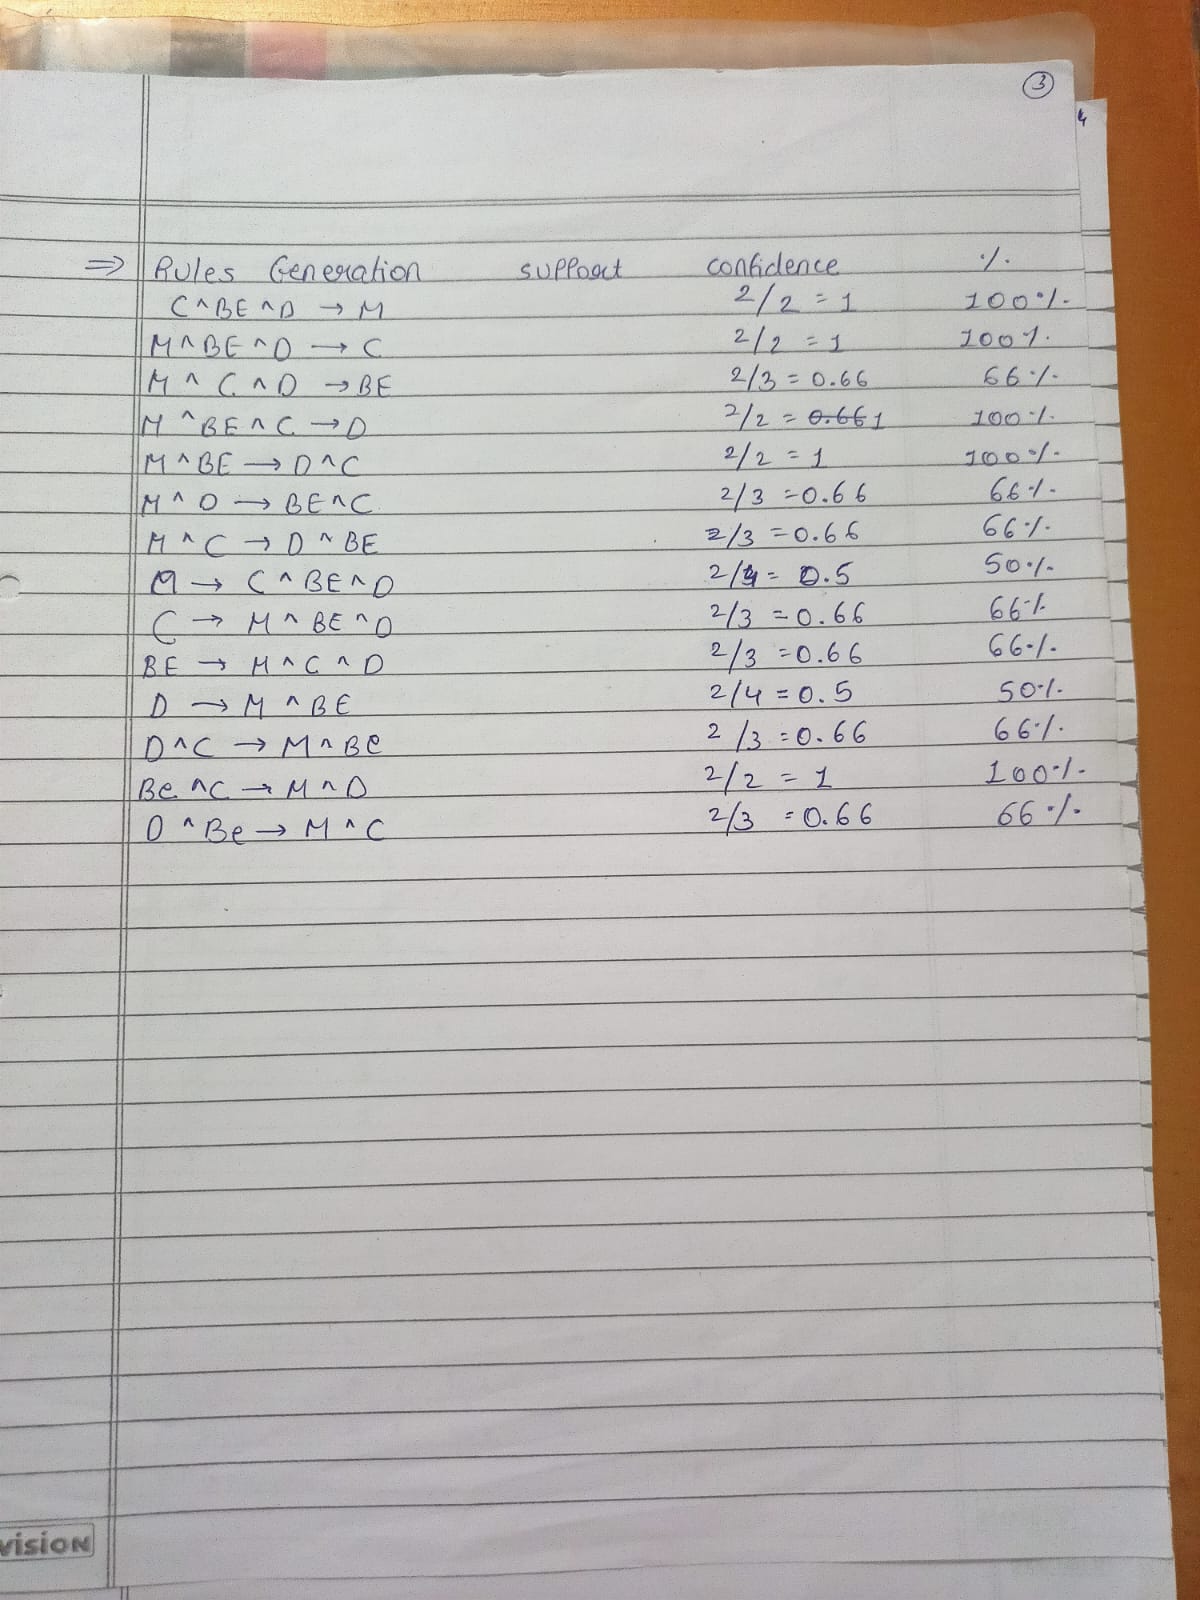 3
4
⇒ Rules Generation support confidence %
C ^ BE ^ D → M 2/2 = 1 100%
M ^ BE ^ D → C 2/2 = 1 100%
M ^ C ^ D → BE 2/3 = 0.66 66%
M ^ BE ^ C → D 2/2 = 0.66 1 100%
M ^ BE → D ^ C 2/2 = 1 100%
M ^ D → BE ^ C 2/3 = 0.66 66%
M ^ C → D ^ BE 2/3 = 0.66 66%
M → C ^ BE ^ D 2/4 = 0.5 50%
C → M ^ BE ^ D 2/3 = 0.66 66%
BE → M ^ C ^ D 2/3 = 0.66 66%
D → M ^ BE 2/4 = 0.5 50%
D ^ C → M ^ Be 2/3 = 0.66 66%
Be ^ C → M ^ D 2/2 = 1 100%
D ^ Be → M ^ C 2/3 = 0.66 66%
vision